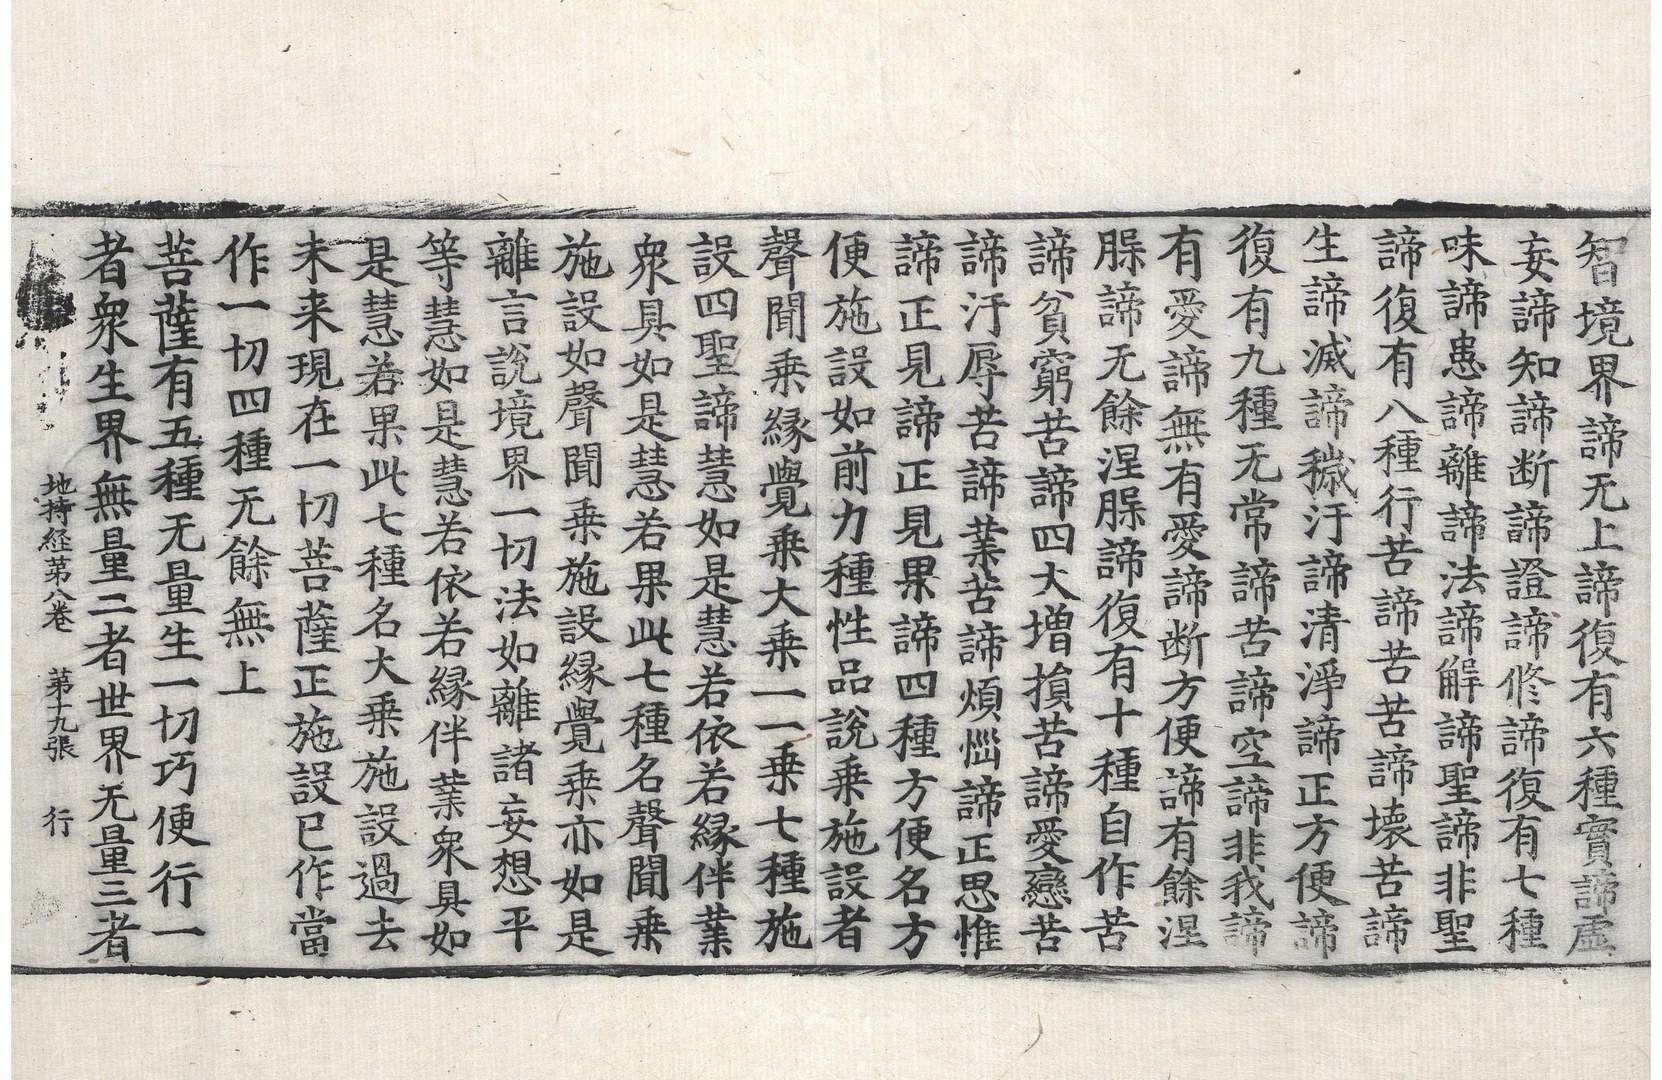 智境界諦无上諦復有六種實諦虛
妄諦知諦断諦證諦修諦復有七種
味諦患諦離諦法諦解諦聖諦非聖
諦復有八種行苦諦苦苦諦壞苦諦
生諦滅諦穢汙諦清淨諦正方便諦
復有九種无常諦苦諦空諦非我諦
有愛諦無有愛諦断方便諦有餘涅
槃諦无餘涅槃諦復有十種自作苦
諦貧窮苦諦四大增損苦諦愛戀苦
諦汙辱苦諦業苦諦煩惱諦正思惟
諦正見諦正見果諦四種方便名方
便施設如前力種性品說乗施設者
聲聞乗縁覺乗大乗一一乗七種施
設四聖諦慧如是慧若依若縁伴業
衆具如是慧若果此七種名聲聞乗
施設如聲聞乗施設縁覺乗亦如是
離言說境界一切法如離諸妄想平
等慧如是慧若依若縁伴業衆具如
是慧若果此七種名大乗施設過去
未来現在一切菩薩正施設已作當
作一切四種无餘無上
菩薩有五種无量生一切巧便行一
者衆生界無量二者世界无量三者
地持経第八卷 第十九張 行